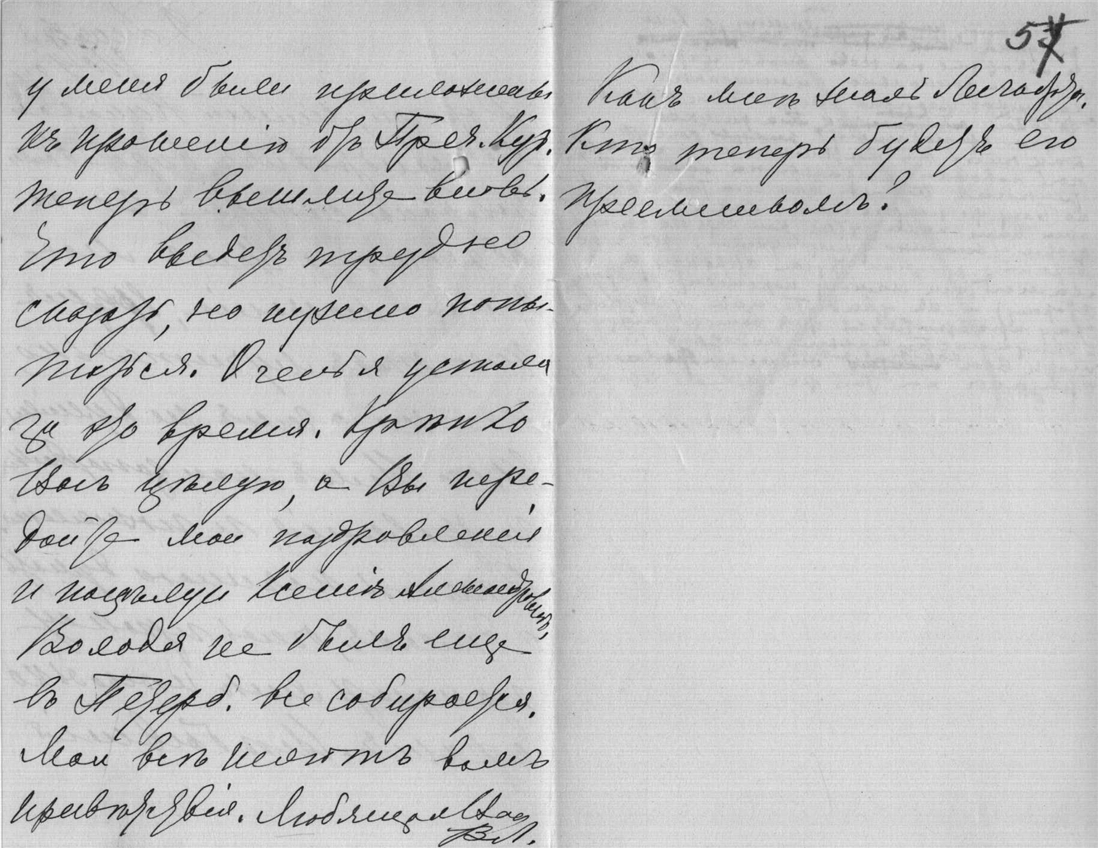 у меня были приложены
къ прошенію
теперь вышлите вновь.
Что выйдетъ трудно
сказать, но нужно попы-
таться. Очень я устала
за это время. Крѣпко
Васъ цѣлую, а Вы пере-
дайте мои поздравленія
и поцѣлуи Ксеніи Александровнѣ,
Володя не былъ еще
въ Петерб. все собирается.
Мои всѣ шлютъ вамъ
привѣтствія. Любящая Вас
57
Какъ мнѣ жаль
Кто теперь будетъ его
преемникомъ?